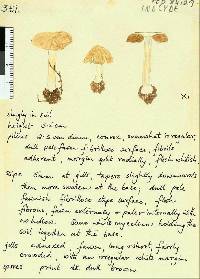 321.
INOCYBE
x 1
Singly in soil
height - 3-5 cm
pileus 2-3 cm diam, convex, somewhat irregular,
dull pale fawn, fibrillose surface, fibrils
adherent, margin split radially, flesh whitish.
stipe 5mm at gills, tapers slightly downwards
then more swollen at the base, dull pale
fawnish fibrillose stipe surface, flesh
fibrous, fawn externally or paler internally with
no hollow. Some white mycelium holding the
soil together at the base.
gills adnexed, fawn, long & short, fairly
crowded, with an irregular white margin
spores print dk dull brown